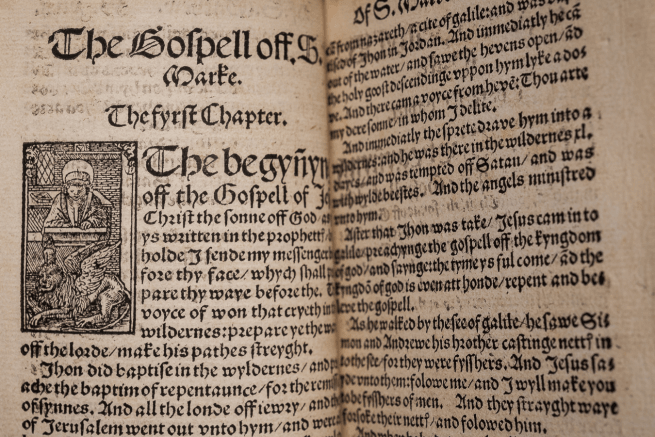 The Gospell off. S.
Marke.
The fyrst Chapter.
The begyñyn
off the Gospell of Je
Christ the sonne off God as
ys written in the prophett/
holde I sende my messenger
fore thy face/ whych shall
pare thy waye before the.
voyce of won that cryeth in
wildernes: prepare ye the wa
off the lorde/ make his pathes streyght.
Jhon did baptise in the wyldernes/ and
ache the baptim of repentaunce/ for the rem
off synnes. And all the londe off iewry/ and
of Jerusalem went out vnto hym/ and were
Of S.
from nazareth/ a cite of galile: and was
of Jhon in Jordan. And immediatly he cã
out of the water/ and sawe the hevens open/ ãd
the holy goost descendinge vppon hym lyke a do
ve. And there cam a voyce from hevẽ: Thou arte
my dere sonne/ in whom I delite.
And immediatly the sprete drave hym into a
wildernes: and he was there in the wildernes xl.
dayes/ and was tempted off Satan/ and was
with wylde beestes. And the angels ministred
vnto hym.
After that Jhon was take/ Jesus cam in to
galile/ preachynge the gospell off the kyngdom
of god/ and saynge: the tyme ys ful come/ ãd the
kyngdõ of god is even att honde/ repent and be
leve the gospell.
As he walked by the see of galile/ he sawe Si
mon and Andrewe his brother castinge nett? in
to the see/ for they were fysshers. And Jesus sa
vnto them: folowe me/ and I wyll make you
to be fysshers of men. And they strayght waye
forsoke their nett?/ and folowed him.